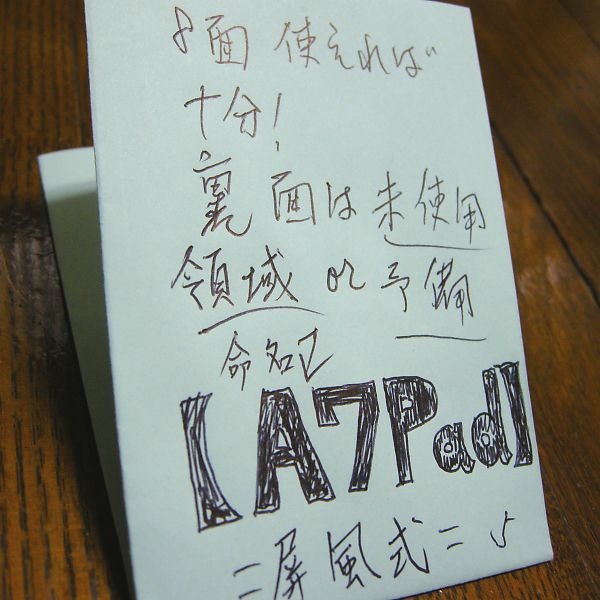 8面 使えれば
十分!
裏面は未使用
領域 or 予備
命名
【A7Pad】
=屏風式= ♪